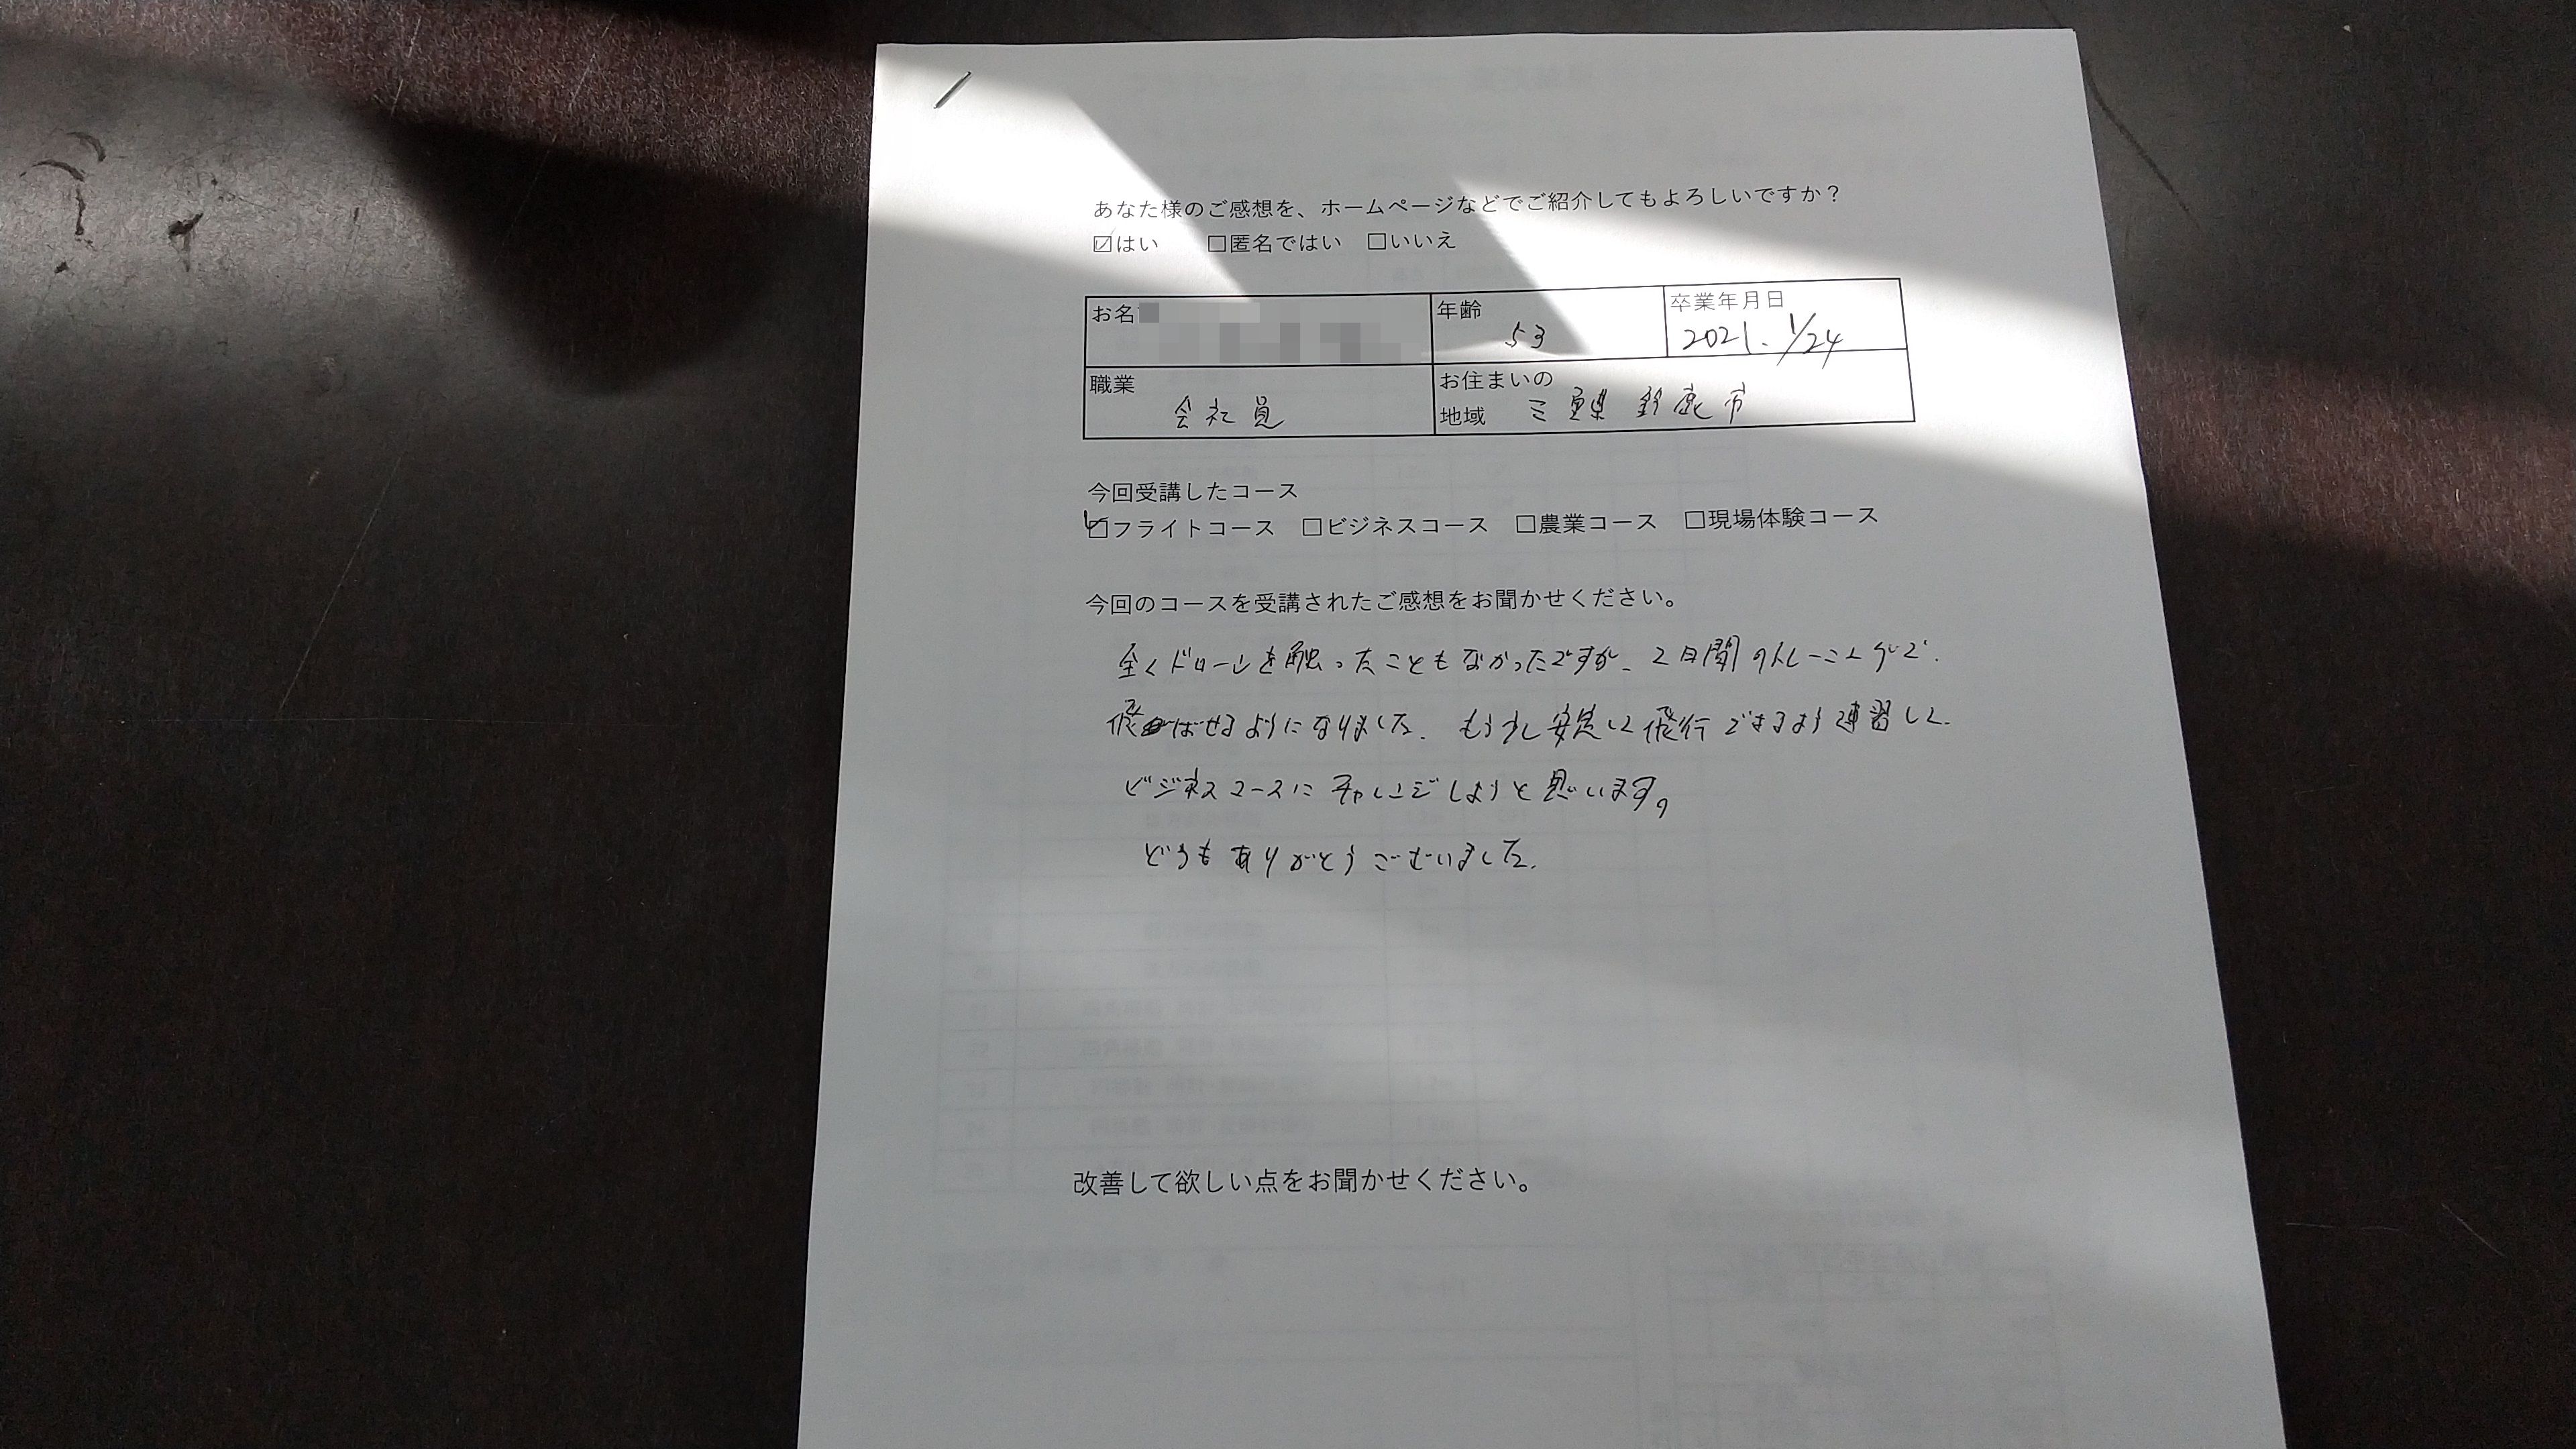 あなた様のご感想を、ホームページなどでご紹介してもよろしいですか？
☑はい　□匿名ではい　□いいえ
お名
年齢
53
卒業年月日
2021. 1/24
職業
会社員
お住まいの
地域
三重県 鈴鹿市
今回受講したコース
☑フライトコース　□ビジネスコース　□農業コース　□現場体験コース
今回のコースを受講されたご感想をお聞かせください。
全くドローンを触ったこともなかったですが、2日間のトレーニングで、
飛ばせるようになりました。もう少し安定して飛行できるよう練習して、
ビジネスコースにチャレンジしようと思います。
どうもありがとうございました。
改善して欲しい点をお聞かせください。